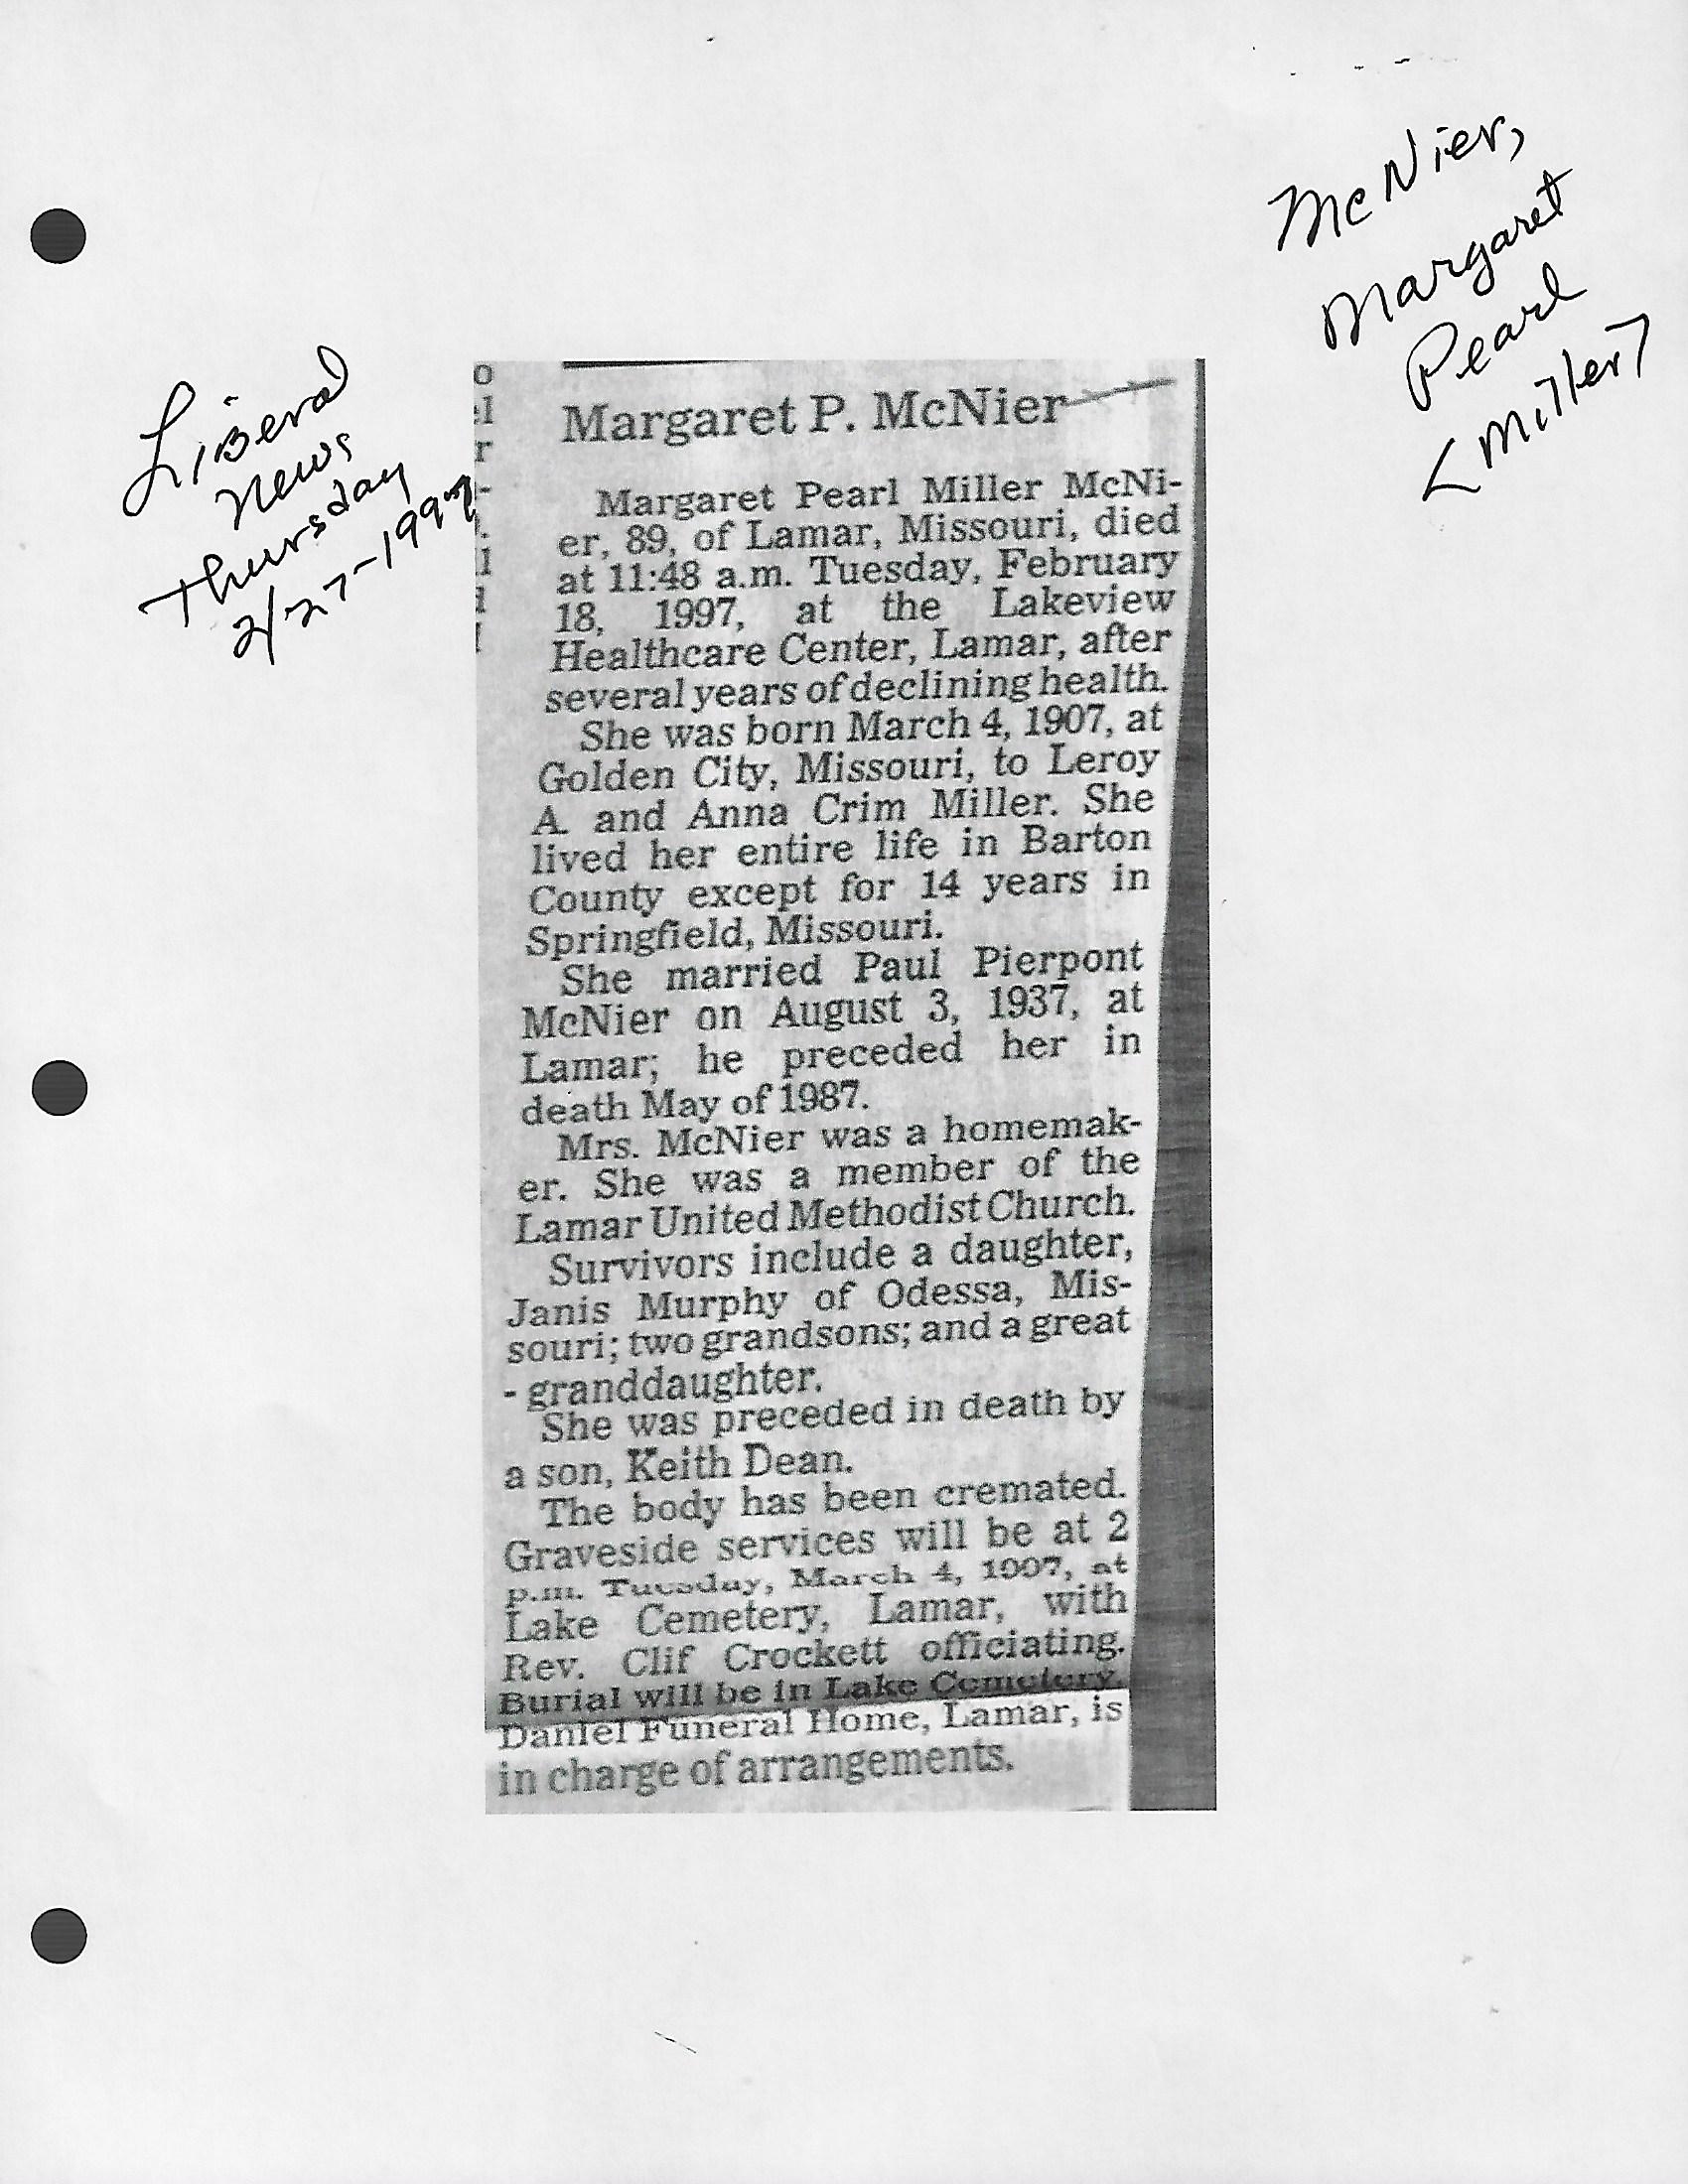 McNier,
Margaret
Pearl
<Miller>
Liberal
News
Thursday
2/27-1997
Margaret P. McNier
Margaret Pearl Miller McNi-
er, 89, of Lamar, Missouri, died
at 11:48 a.m. Tuesday, February
18, 1997, at the Lakeview
Healthcare Center, Lamar, after
several years of declining health.
She was born March 4, 1907, at
Golden City, Missouri, to Leroy
A. and Anna Crim Miller. She
lived her entire life in Barton
County except for 14 years in
Springfield, Missouri.
She married Paul Pierpont
McNier on August 3, 1937, at
Lamar; he preceded her in
death May of 1987.
Mrs. McNier was a homemak-
er. She was a member of the
Lamar United Methodist Church.
Survivors include a daughter,
Janis Murphy of Odessa, Mis-
souri; two grandsons; and a great
- granddaughter.
She was preceded in death by
a son, Keith Dean.
The body has been cremated.
Graveside services will be at 2
p.m. Tuesday, March 4, 1997, at
Lake Cemetery, Lamar, with
Rev. Clif Crockett officiating.
Burial will be in Lake Cemetery.
Daniel Funeral Home, Lamar, is
in charge of arrangements.